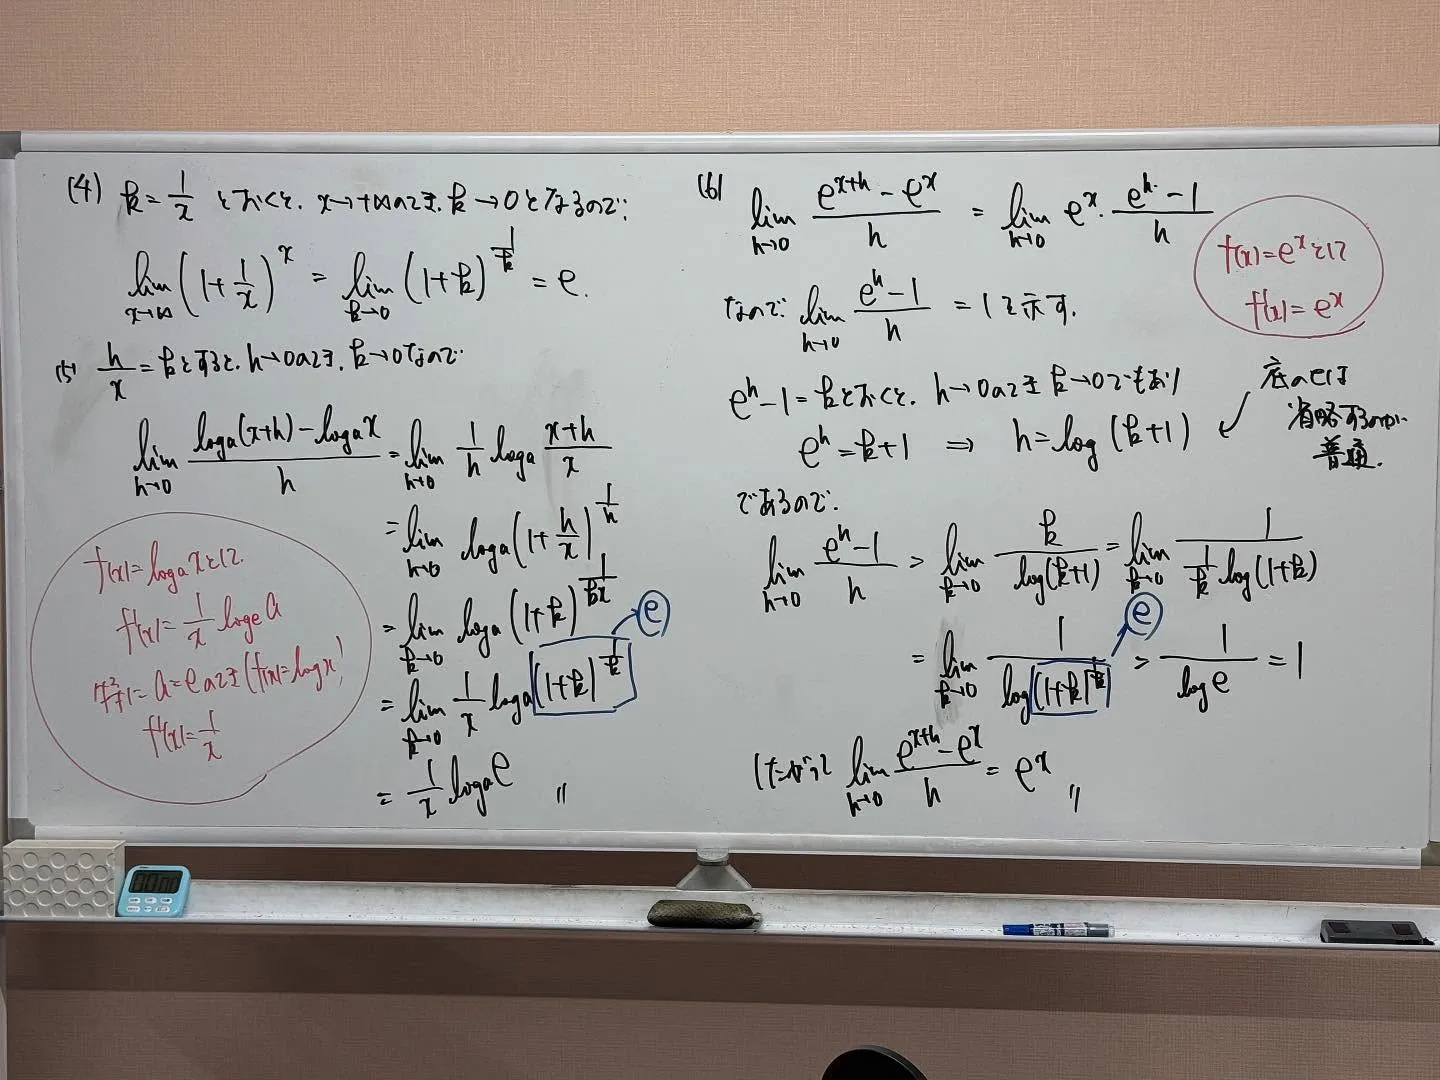 (4) k = 1/x とおくと、x→+∞のとき、k→0となるので、
lim_{x→∞} (1+1/x)^x = lim_{k→0} (1+k)^{1/k} = e.
(5) h/x = kとすると、h→0のとき、k→0なので
lim_{h→0} (log_a(x+h) - log_a x)/h = lim_{h→0} 1/h log_a (x+h)/x
= lim_{h→0} log_a (1+h/x)^{1/h}
= lim_{k→0} log_a (1+k)^{1/kx}
e
= lim_{k→0} 1/x log_a (1+k)^{1/k}
= 1/x log_a e 〃
f(x)=log_a xとして
f'(x)= 1/x log_e a
a=eのとき(f(x)=log x)
f'(x)= 1/x
(6) lim_{h→0} (e^{x+h} - e^x)/h = lim_{h→0} e^x・(e^h - 1)/h
f(x)=e^xとして
f'(x)=e^x
なので lim_{h→0} (e^h - 1)/h = 1を示す.
e^h-1=kとおくと、h→0のときk→0でもあり
e^h = k+1 ⇒ h = log(k+1)
底のeは
省略するのが
普通.
であるので、
lim_{h→0} (e^h - 1)/h = lim_{k→0} k/log(k+1) = lim_{k→0} 1/(1/k log(1+k))
e
= lim_{k→0} 1/log(1+k)^{1/k} = 1/log e = 1
したがって lim_{h→0} (e^{x+h} - e^x)/h = e^x 〃